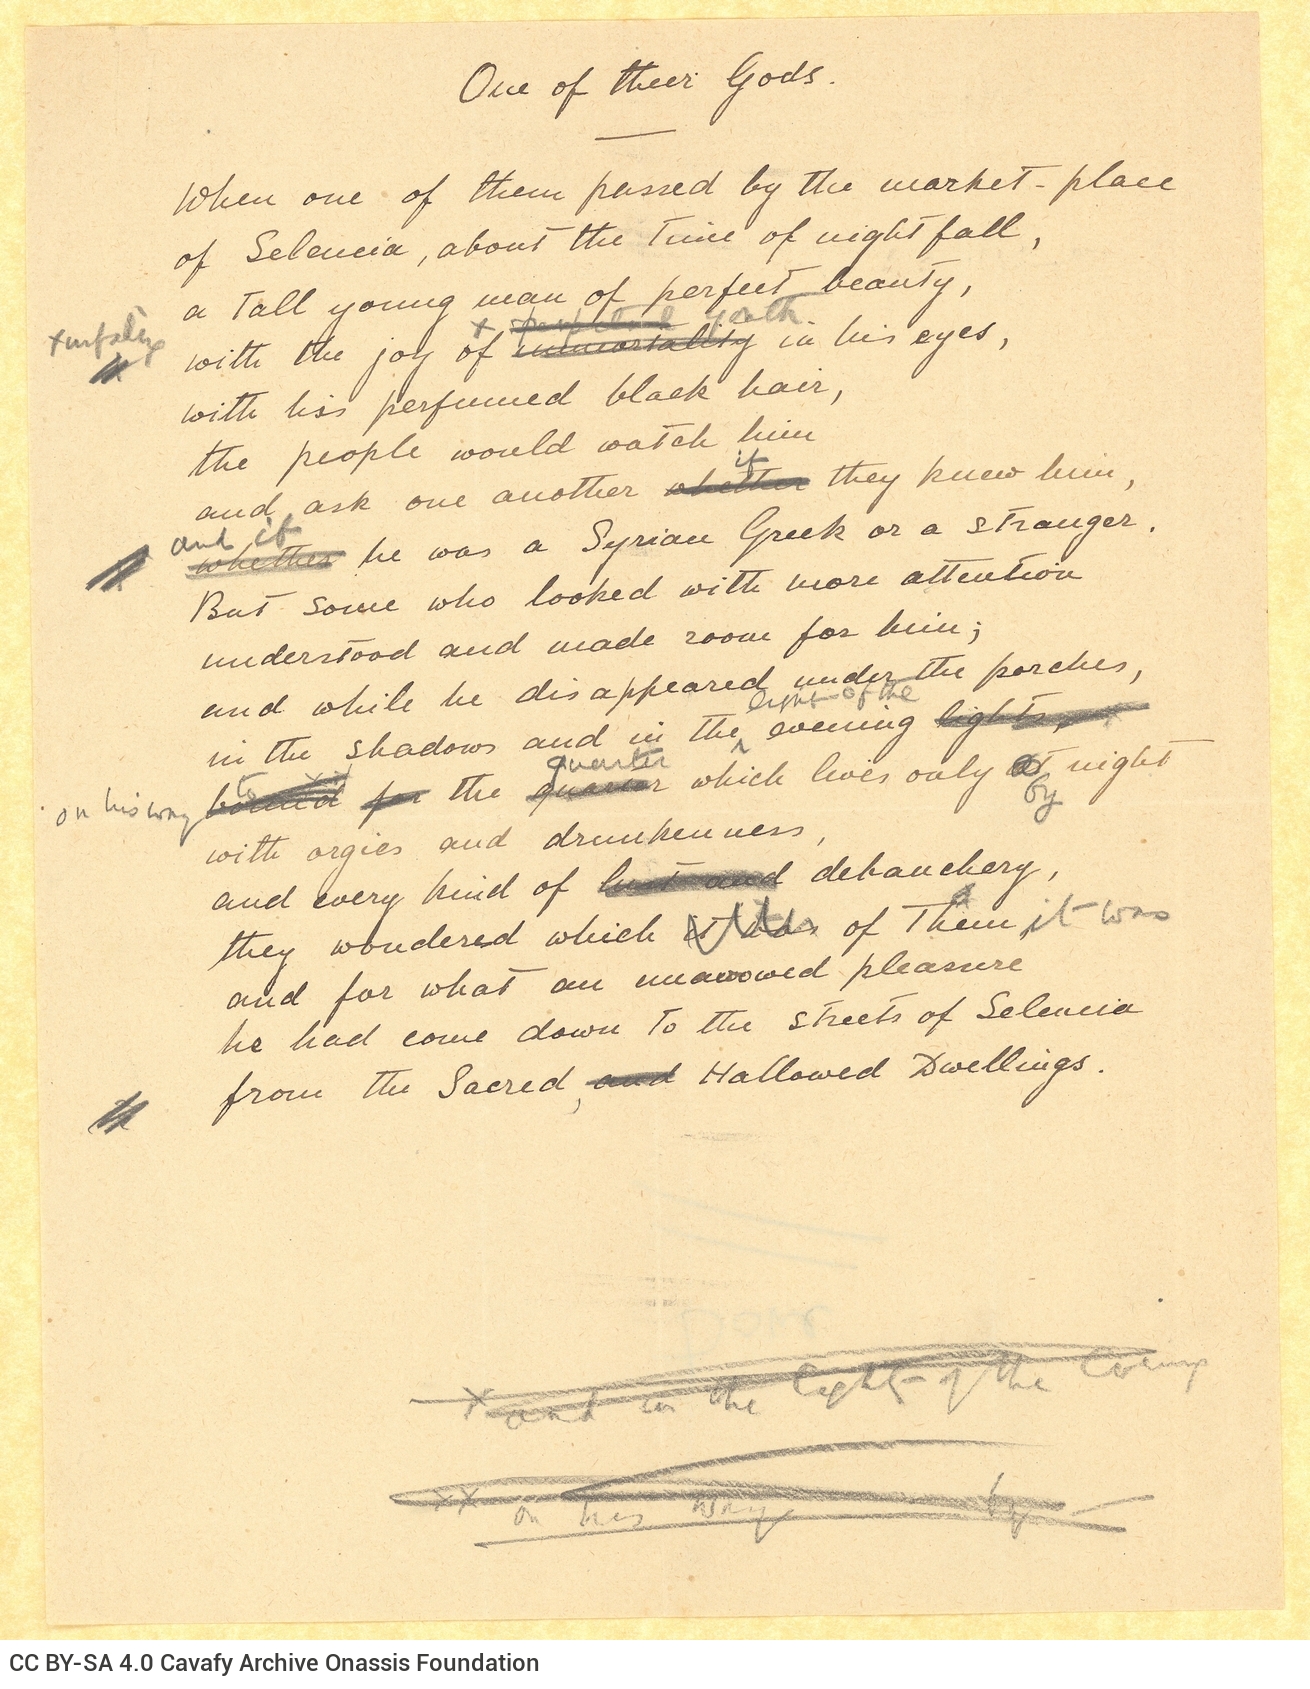 One of their Gods.
When one of them passed by the market-place
of Seleucia, about the time of nightfall,
a tall young man of perfect beauty,
perpetual youth
with the joy of immortality in his eyes,
with his perfumed black hair,
the people would watch him
if
and ask one another whether they knew him,
and if
whether he was a Syrian Greek or a stranger.
But some who looked with more attention
understood and made room for him;
and while he disappeared under the porches,
light of the
in the shadows and in the evening lights,
to quarter
on his way bound for the quarter which lives only at night
by
with orgies and drunkenness,
and every kind of lust and debauchery,
they wondered which it was of Them it was
and for what an unavowed pleasure
he had come down to the streets of Seleucia
from the Sacred, and Hallowed Dwellings.
x and in the light of the evening
xx on his way by
CC BY-SA 4.0 Cavafy Archive Onassis Foundation